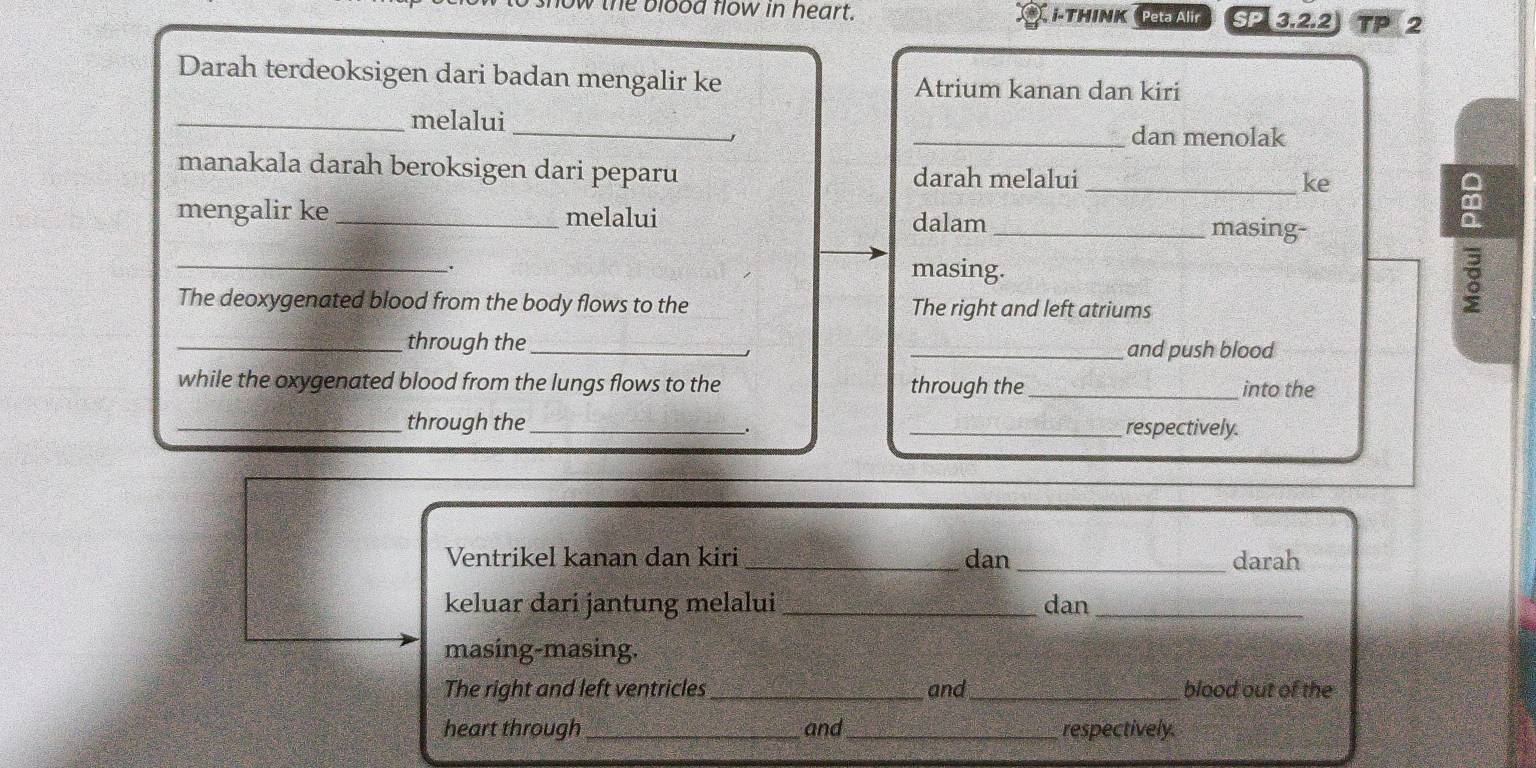 the blood flow in heart.
i-THINK Peta Alir SP 3.2.2 TP 2
Darah terdeoksigen dari badan mengalir ke
____________ melalui ____________,
manakala darah beroksigen dari peparu
mengalir ke ____________ melalui
____________.
The deoxygenated blood from the body flows to the
____________ through the ____________,
while the oxygenated blood from the lungs flows to the
____________ through the ____________.
Atrium kanan dan kiri
____________ dan menolak
darah melalui ____________ ke
dalam ____________ masing-
masing.
The right and left atriums
____________ and push blood
through the ____________ into the
____________ respectively.
Modul PBD
Ventrikel kanan dan kiri ____________ dan ____________ darah
keluar dari jantung melalui ____________ dan ____________
masing-masing.
The right and left ventricles ____________ and ____________ blood out of the
heart through ____________ and ____________ respectively.